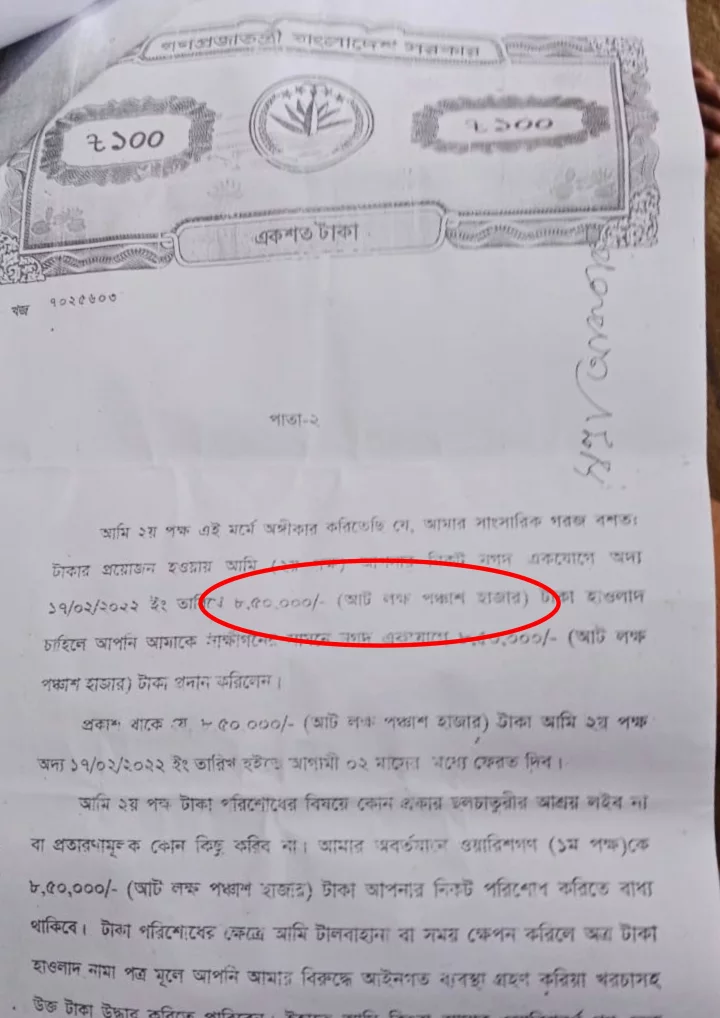 গণপ্রজাতন্ত্রী বাংলাদেশ সরকার
৳১০০
৳১০০
একশত টাকা
খজ ৭০২৫৬০৩
পাতা-২
আমি ২য় পক্ষ এই মর্মে অঙ্গীকার করিতেছি যে, আমার সাংসারিক গরজ বশতঃ
টাকার প্রয়োজন হওয়ায় আমি (২য় পক্ষ) আপনার নিকট নগদ একযোগে অদ্য
১৭/০২/২০২২ ইং তারিখে ৮,৫০,০০০/- (আট লক্ষ পঞ্চাশ হাজার) টাকা হাওলাদ
চাহিলে আপনি আমাকে স্বাক্ষীগনের সামনে নগদ একযোগে ৮,৫০,০০০/- (আট লক্ষ
পঞ্চাশ হাজার) টাকা প্রদান করিলেন।
প্রকাশ থাকে যে, ৮,৫০,০০০/- (আট লক্ষ পঞ্চাশ হাজার) টাকা আমি ২য় পক্ষ
অদ্য ১৭/০২/২০২২ ইং তারিখ হইতে আগামী ০২ মাসের মধ্যে ফেরত দিব।
আমি ২য় পক্ষ টাকা পরিশোধের বিষয়ে কোন প্রকার ছলচাতুরীর আশ্রয় লইব না
বা প্রতারণামূলক কোন কিছু করিব না। আমার অবর্তমানে ওয়ারিশগণ (১ম পক্ষ)কে
৮,৫০,০০০/- (আট লক্ষ পঞ্চাশ হাজার) টাকা আপনার নিকট পরিশোধ করিতে বাধ্য
থাকিবে। টাকা পরিশোধের ক্ষেত্রে আমি টালবাহানা বা সময় ক্ষেপন করিলে অত্র টাকা
হাওলাদ নামা পত্র মূলে আপনি আমার বিরুদ্ধে আইনগত ব্যবস্থা গ্রহণ করিয়া খরচাসহ
উক্ত টাকা উদ্ধার করিতে পারিবেন।